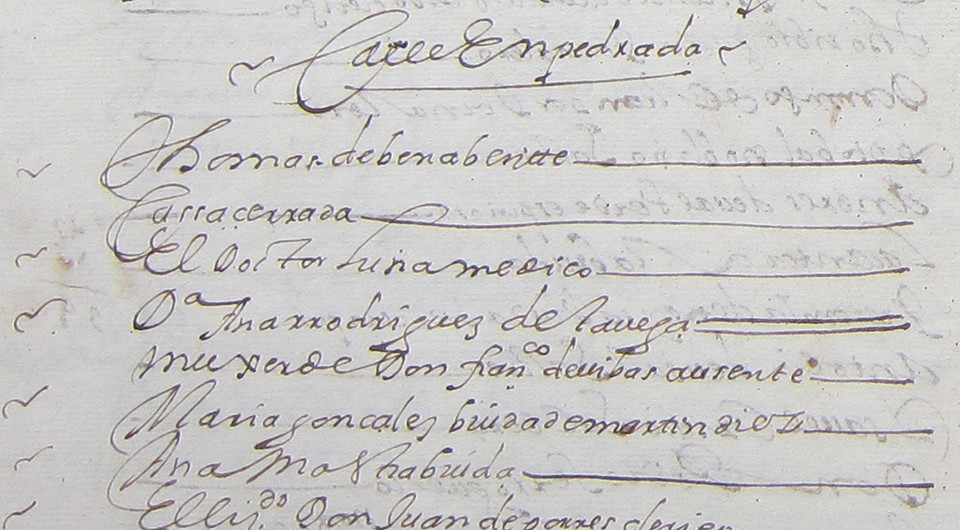 Calle Enpedrada
Thomas de benabentte
Cassa cerrada
El Doctor luna medico
Dª Ana rrodriguez de la uega
muxer de Don franco de uibas ausente
Maria gonçalez biuda de martin diez
Ana biuda
El lizdo Don Juan de porres